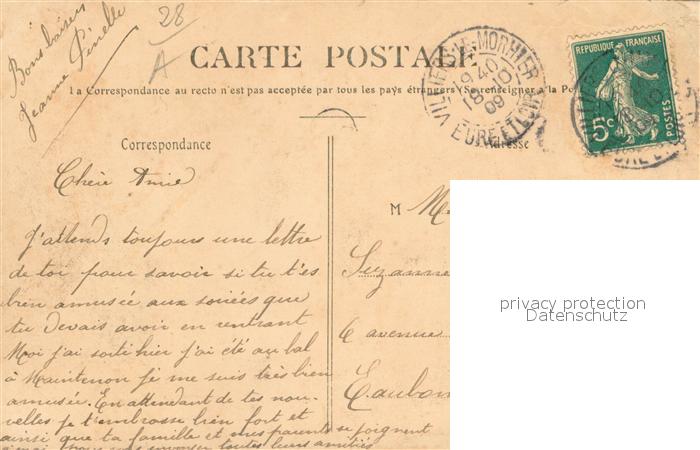 Bons baisers
Jeanne Pinelle
28
A
CARTE POSTALE
La Correspondance au recto n'est pas acceptée par tous les pays étrangers (Se renseigner à la Po
VILLIERS-LE-MORHIER
19 40
18 10
09
EURE ET LOIR
REPUBLIQUE FRANÇAISE
5c
POSTES
Correspondance
Adresse
Chère Amie
J'attends toujours une lettre
de toi pour savoir si tu t'es
bien amusée aux soirées que
tu devais avoir en rentrant
Moi j'ai sorti hier j'ai été au bal
à Maintenon je me suis très bien
amusée. En attendant de tes nou-
velles je t'embrasse bien fort et
ainsi que ta famille et mes parents se joignent
à moi pour vous envoyer toutes leurs amitiés
M
Suzanne
6 avenue
Eaubon
privacy protection
Datenschutz